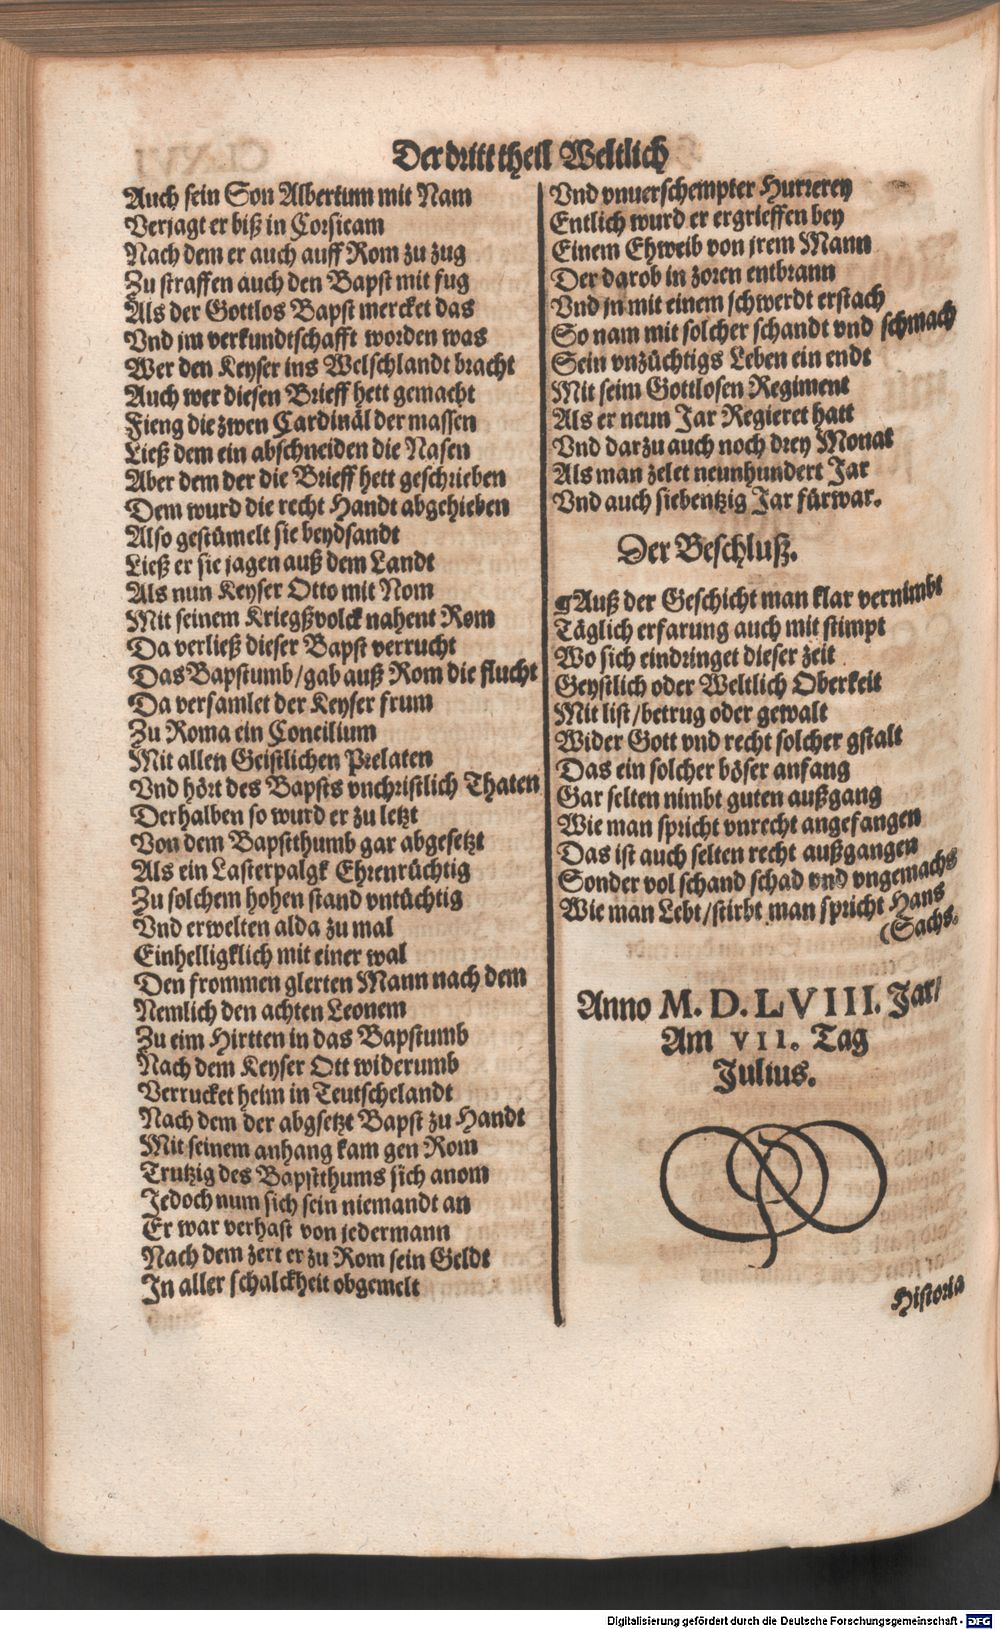 Der dritt theil Weltlich
Auch sein Son Albertum mit Nam
Verjagt er biß in Corsicam
Nach dem er auch auff Rom zu zug
Zu straffen auch den Bapst mit fug
Als der Gottlos Bapst mercket das
Vnd jm verkundtschafft worden was
Wer den Keyser ins Welschlandt bracht
Auch wer diesen Brieff hett gemacht
Fieng die zwen Cardinäl der massen
Ließ dem ein abschneiden die Nasen
Aber dem der die Brieff hett geschrieben
Dem wurd die recht Handt abgehieben
Also gestümelt sie beydsandt
Ließ er sie jagen auß dem Landt
Als nun Keyser Otto mit Nom
Mit seinem Kriegßvolck nahent Rom
Da verließ dieser Bapst verrucht
Das Bapstumb/gab auß Rom die flucht
Da versamlet der Keyser frum
Zu Roma ein Concilium
Mit allen Geistlichen Prelaten
Vnd hört des Bapsts vnchristlich Thaten
Derhalben so wurd er zu letzt
Von dem Bapstthumb gar abgesetzt
Als ein Lasterpalgk Ehrenrüchtig
Zu solchem hohen stand vntüchtig
Vnd erwelten alda zu mal
Einhelligklich mit einer wal
Den frommen glerten Mann nach dem
Nemlich den achten Leonem
Zu eim Hirtten in das Bapstumb
Nach dem Keyser Ott widerumb
Verrucket heim in Teutschelandt
Nach dem der abgsetzt Bapst zu Handt
Mit seinem anhang kam gen Rom
Trutzig des Bapstthums sich anom
Jedoch num sich sein niemandt an
Er war verhast von jedermann
Nach dem zert er zu Rom sein Geldt
In aller schalckheit obgemelt
Vnd vnuerschempter Hurrerey
Entlich wurd er ergrieffen bey
Einem Ehweib von jrem Mann
Der darob in zoren entbrann
Vnd jn mit einem schwerdt erstach
So nam mit solcher schandt vnd schmach
Sein vnzüchtigs Leben ein endt
Mit seim Gottlosen Regiment
Als er neun Jar Regieret hatt
Vnd darzu auch noch drey Monat
Als man zelet neunhundert Jar
Vnd auch siebentzig Jar fürwar.
Der Beschluß.
Auß der Geschicht man klar vernimbt
Täglich erfarung auch mit stimpt
Wo sich eindringet dieser zeit
Geystlich oder Weltlich Oberkeit
Mit list/betrug oder gewalt
Wider Gott vnd recht solcher gstalt
Das ein solcher böser anfang
Gar selten nimbt guten außgang
Wie man spricht vnrecht angefangen
Das ist auch selten recht außgangen
Sonder vol schand schad vnd vngemachs
Wie man Lebt/stirbt man spricht Hans
(Sachs.
Anno M. D. LVIII. Jar/
Am VII. Tag
Julius.
Historia
Digitalisierung gefördert durch die Deutsche Forschungsgemeinschaft - DFG